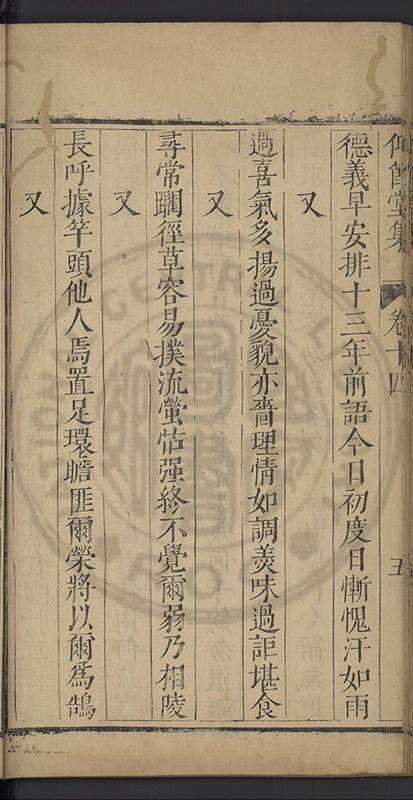 仰節堂集 卷十四 五
德義早安排十三年前語今日初度日慚愧汗如雨
又
過喜氣多揚過憂貌亦嗇理情如調羹味過詎堪食
又
尋常躙徑草容易撲流螢怙强終不覺爾弱乃相陵
又
長呼據竿頭他人焉置足環瞻匪爾榮將以爾為鵠
又